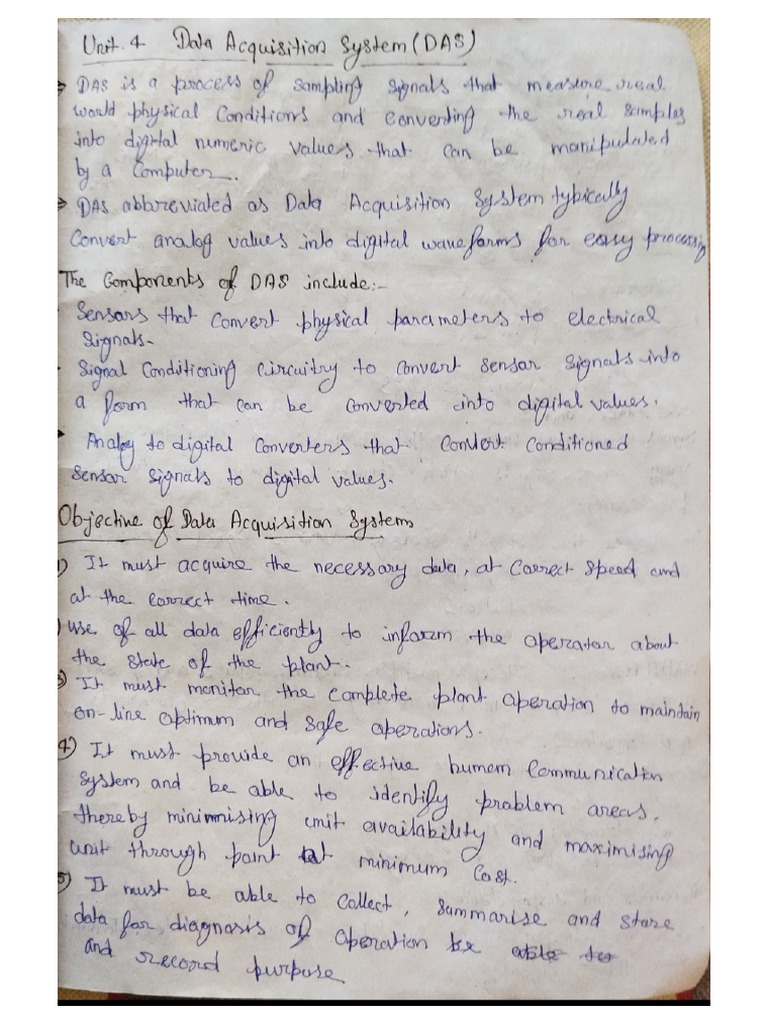 Unit. 4 Data Acquisition System (DAS)
→ DAS is a process of sampling signals that measure real
world physical Conditions and converting the real samples
into digital numeric values that can be manipulated
by a Computer.
→ DAS abbreviated as Data Acquisition System typically
Convert analog values into digital waveforms for easy processing
The Components of DAS include:-
· Sensors that convert physical parameters to electrical
signals.
· Signal Conditioning circuitry to convert sensor signals into
a form that can be converted into digital values.
· Analog to digital converters that convert conditioned
sensor signals to digital values.
Objective of Data Acquisition System
1) It must acquire the necessary data, at correct speed and
at the correct time.
) Use of all data efficiently to inform the operator about
the state of the plant.
3) It must monitor the complete plant operation to maintain
on-line optimum and safe operations.
4) It must provide an effective human Communication
system and be able to identify problem areas,
thereby minimising unit availability and maximising
unit through point at minimum cost.
5) It must be able to collect, summarise and store
data for diagnosis of operation be able to
and record purpose